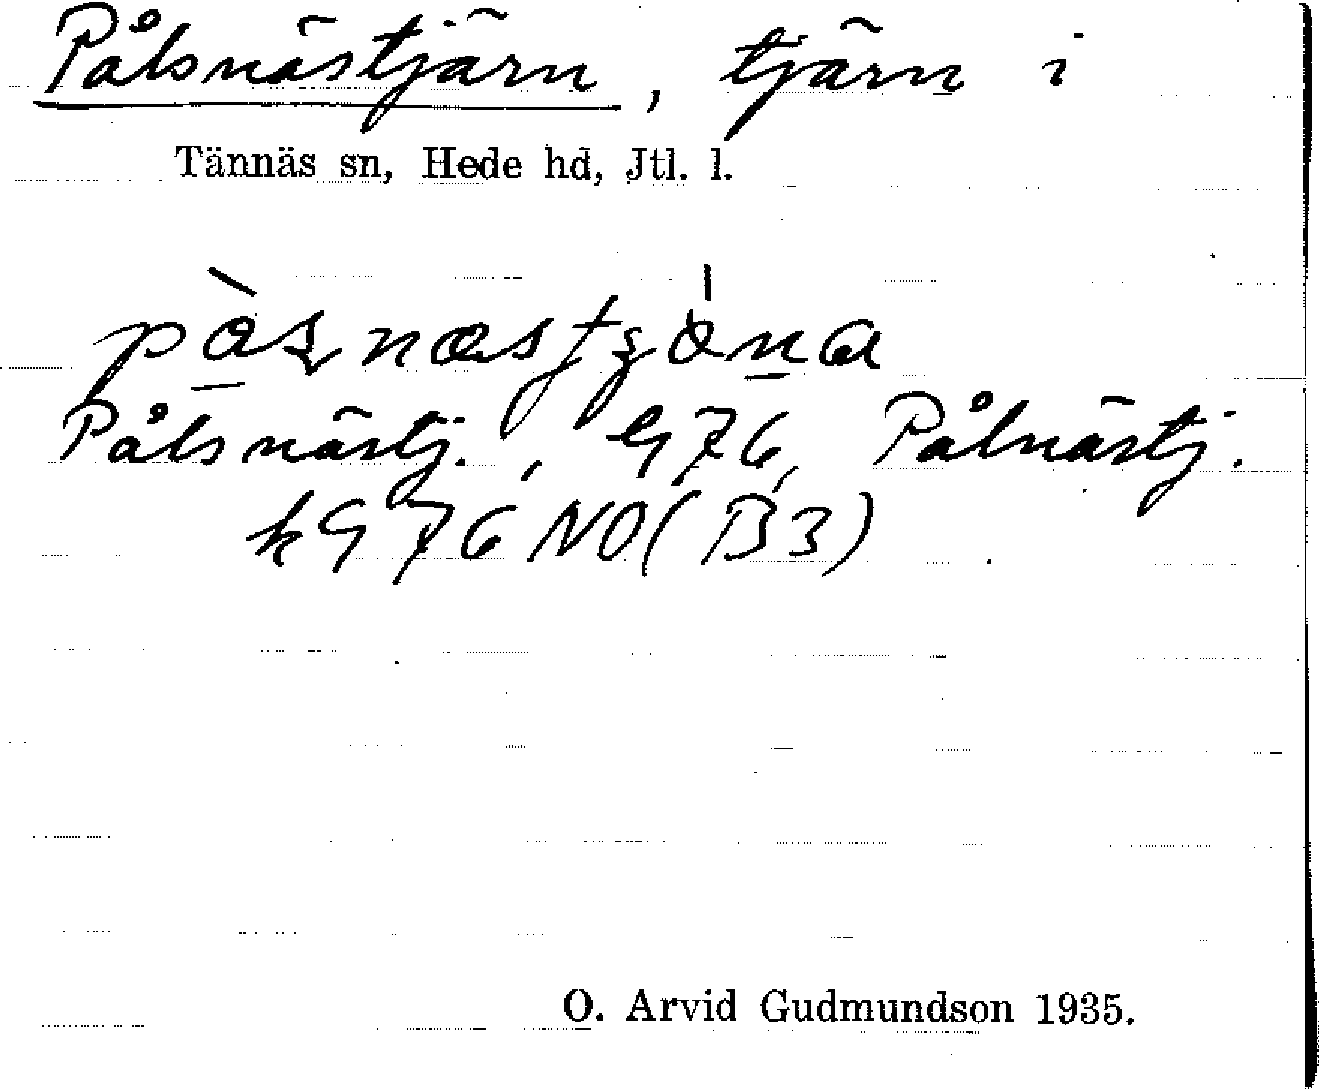 Pålsnästjärn, tjärn i
Tännäs sn, Hede hd, Jtl. l.
Pålsnästj., G76, Pålnästj.
kG76 NO(B3)
O. Arvid Gudmundson 1935.